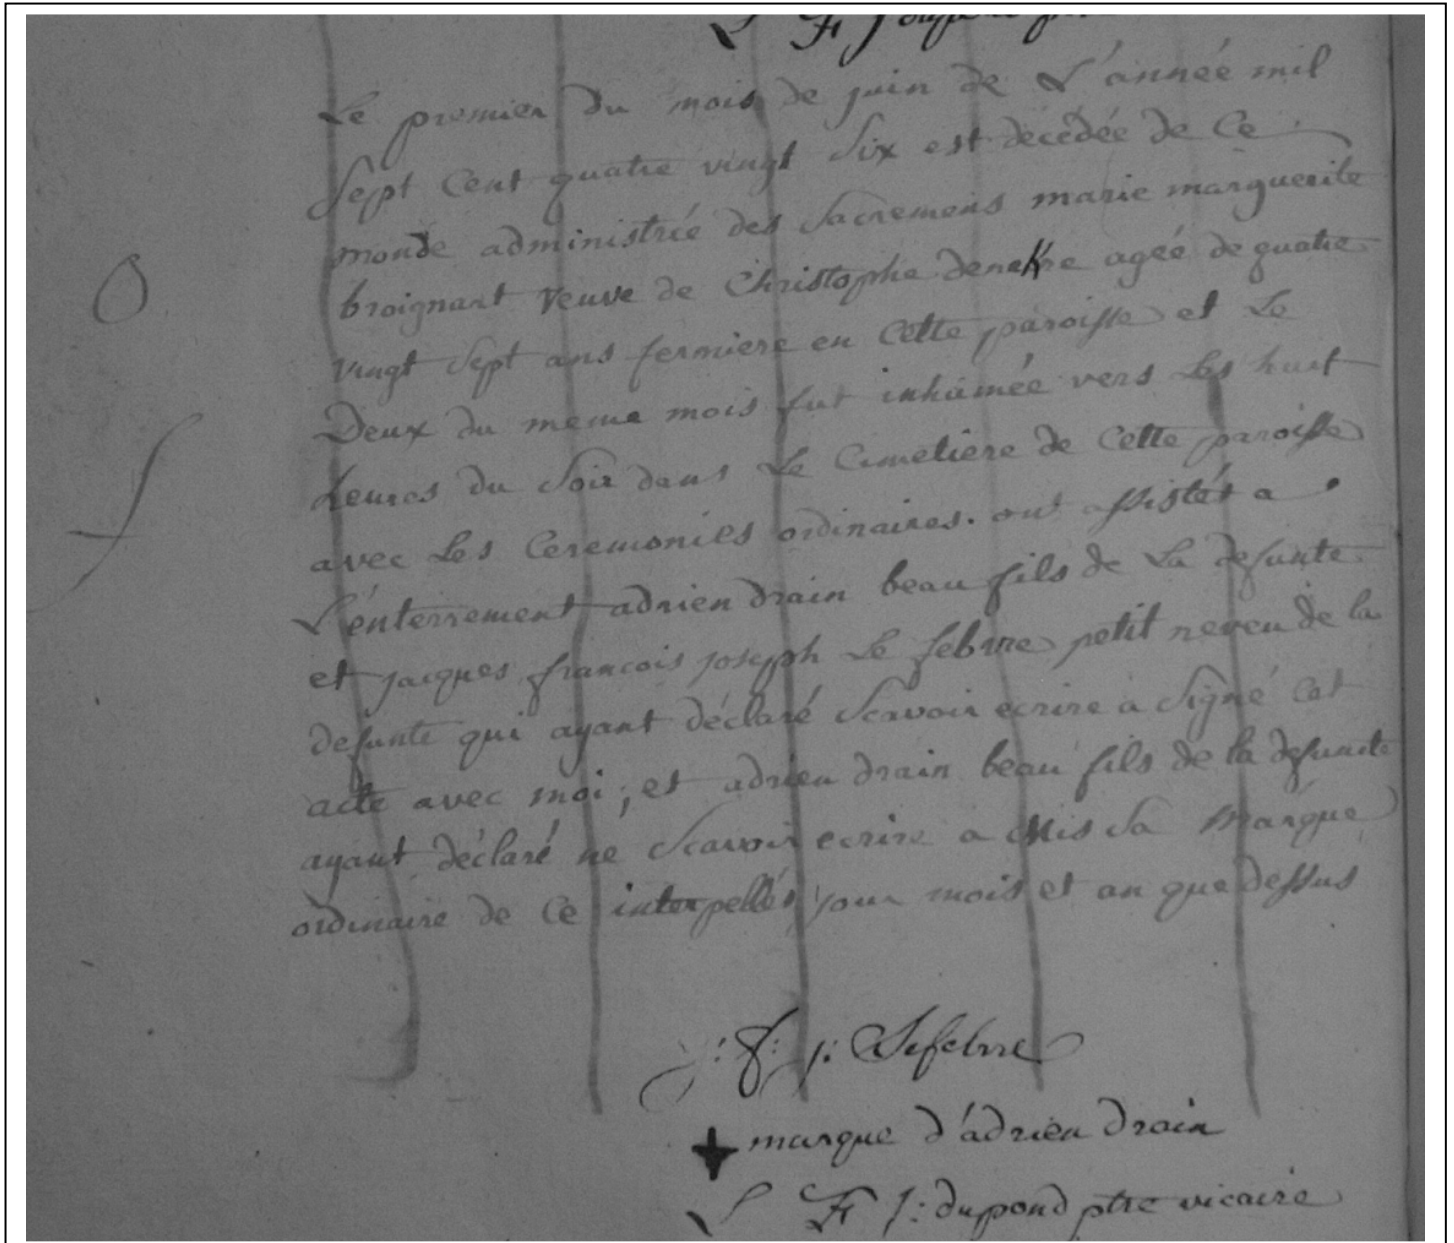 Le premier du mois de juin de L'année mil
Sept Cent quatre vingt Six est décédée de Ce
monde administrée des Sacremens marie marguerite
broignart Veuve de Christophe denekre ageé de quatre
vingt Sept ans fermiere en Cette paroisse et Le
Deux du meme mois fut inhumée vers Les huit
heures du Soir dans Le Cimetiere de Cette paroisse
avec Les Ceremonies ordinaires. ont assistés a
L'énterrement adrien drain beau fils de La defunte
et jacques francois joseph Le febvre petit neveu de la
defunte qui ayant déclaré Scavoir ecrire a Signé Cet
acte avec moi; et adrien drain beau fils de la defunte
ayant déclaré ne Scavoir ecrire a Mis Sa Marque
ordinaire de Ce interpellés jour mois et an que dessus
j: f: j: Lefebvre
marque d'adrien drain
F J: dupond ptre vicaire